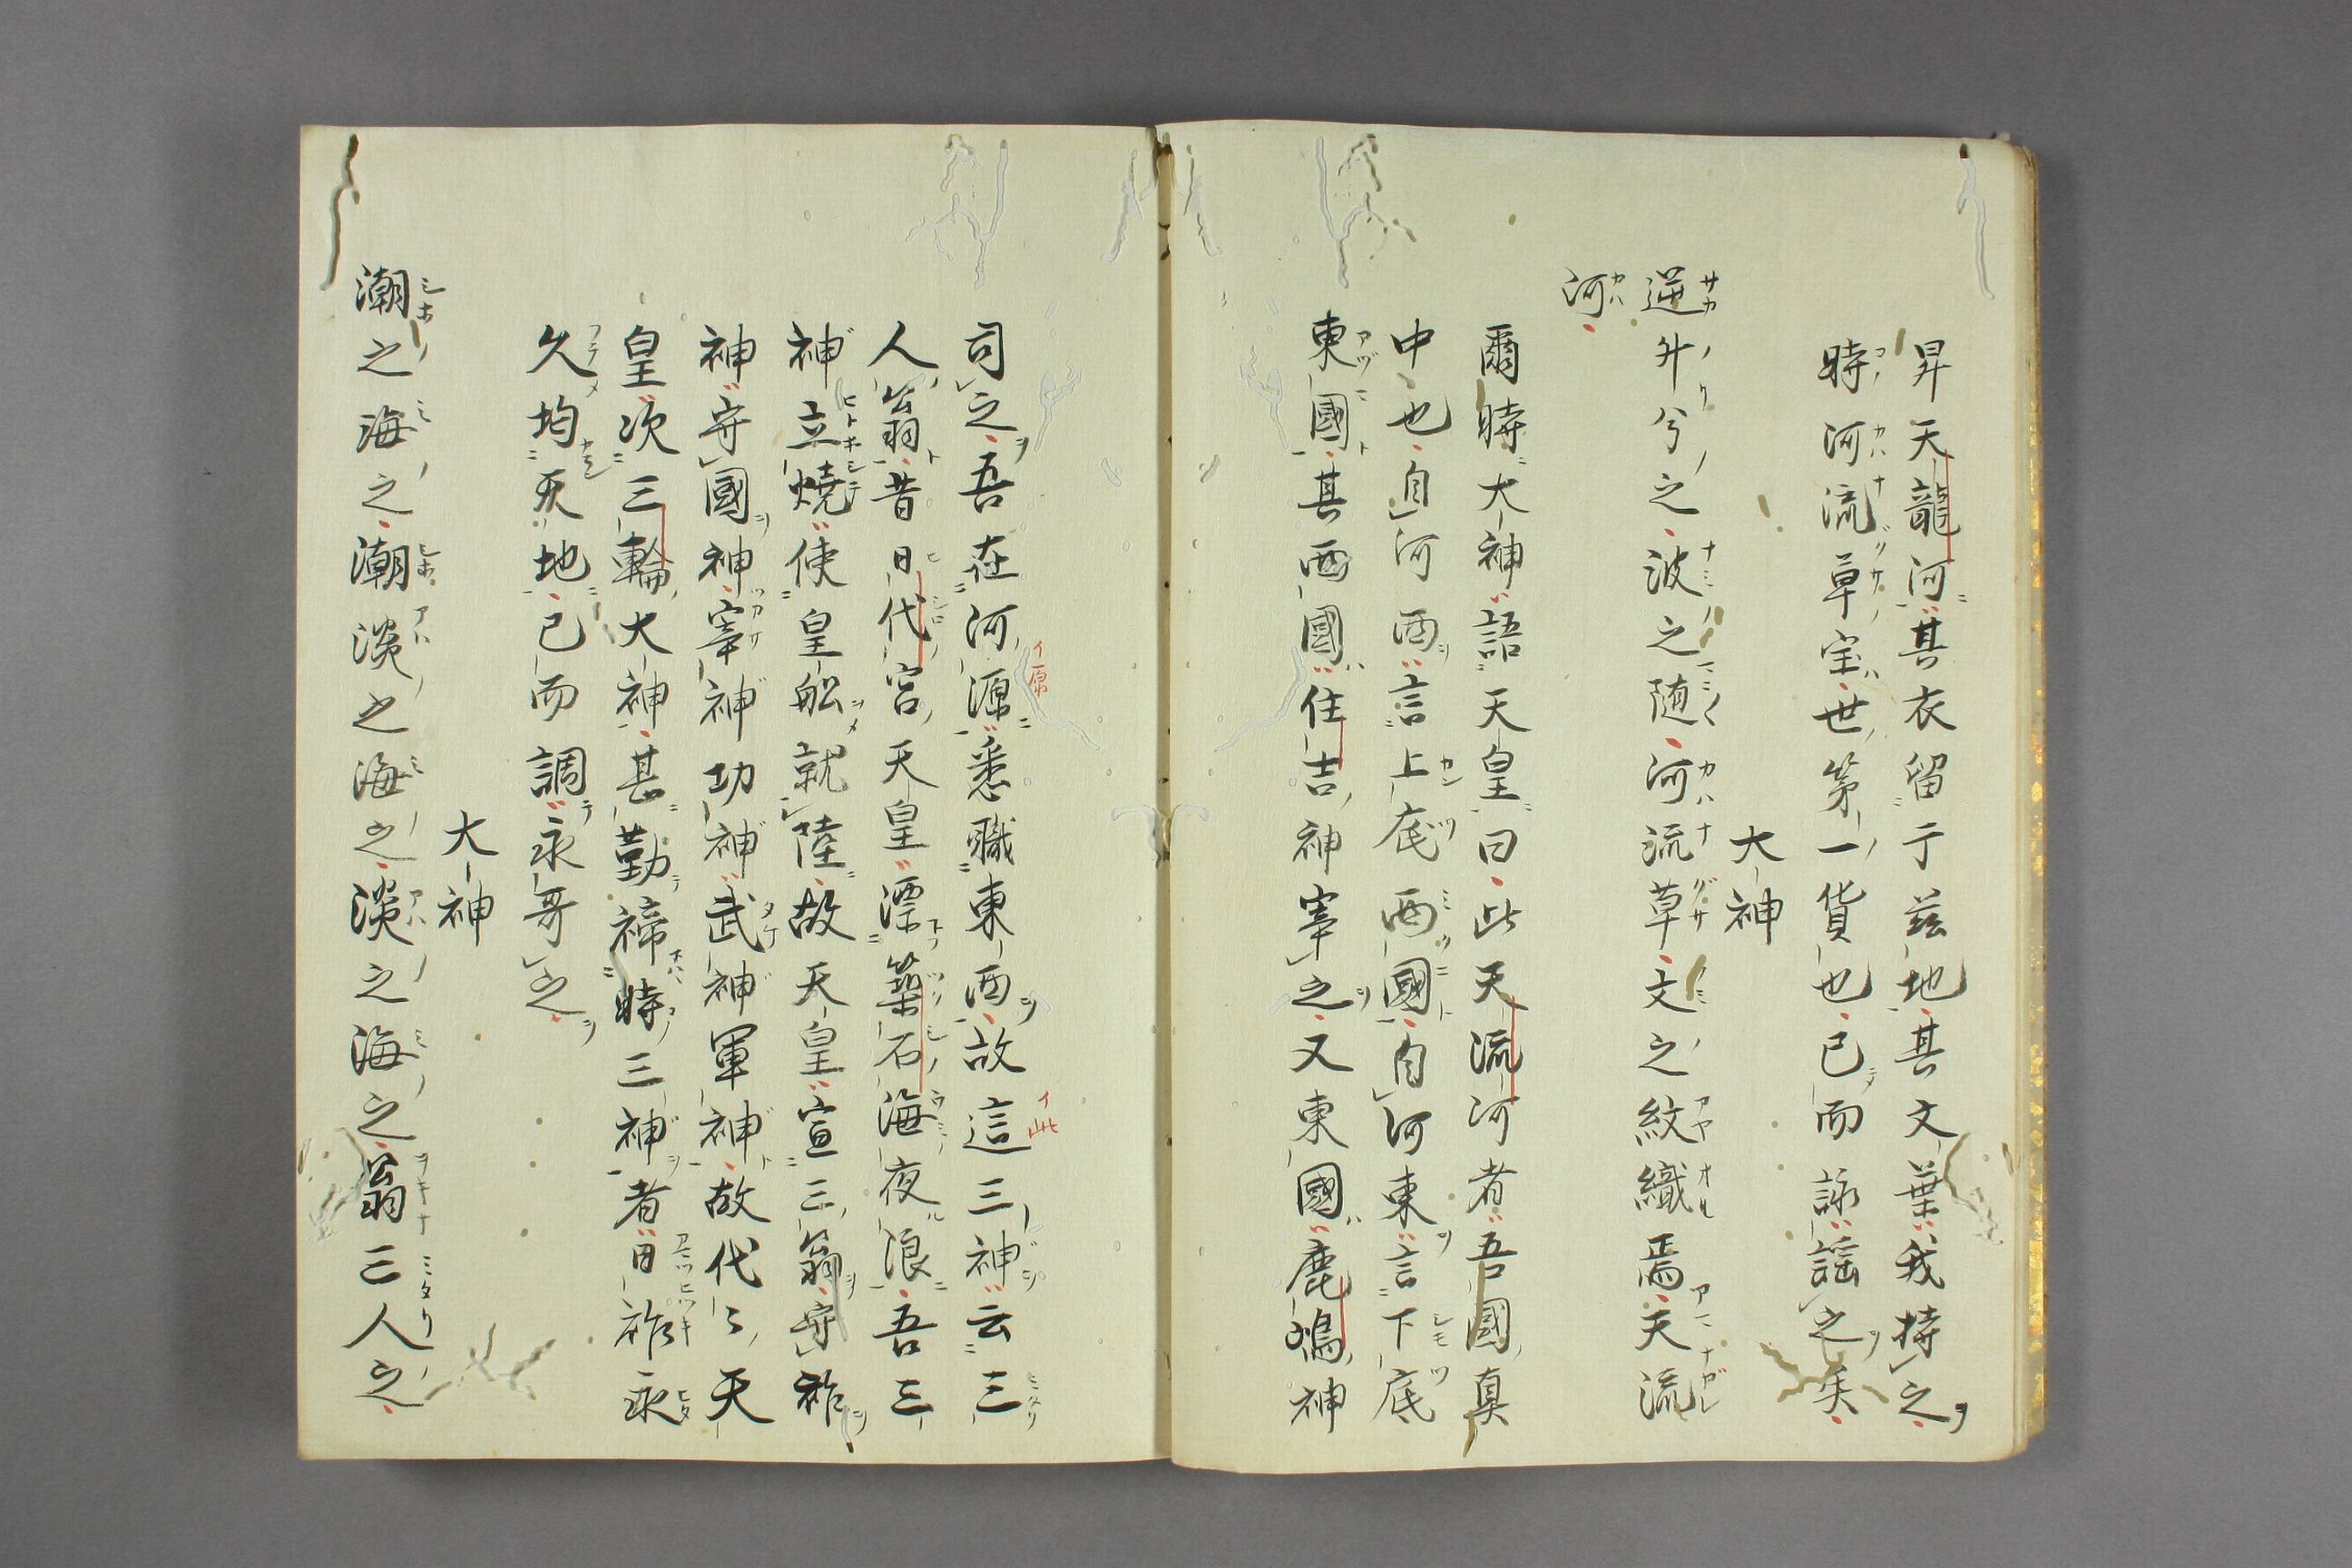 昇天龍河其衣留于茲地其文葉我持之
時河流草宝世第一貨也已而詠謡之矣
大神
逆舛兮之波之随河流草文之紋織焉天流
河
爾時大神語天皇曰此天流河者吾國真
中也自河西言上底西國自河東言下底
東國其西國住吉神宰之又東國鹿嶋神
司之吾在河源悉職東西故這三神云三
人翁昔日代宮天皇漂築石海夜浪吾三
神立燒使皇舩就陸故天皇宣三翁守祚
神守國神宰神功神武神軍神故代〻天
皇次三輪大神甚勤禘時三神者日祚永
久均天地已而調永哥之
大神
潮之海之潮淡之海之淡之海之翁三人之